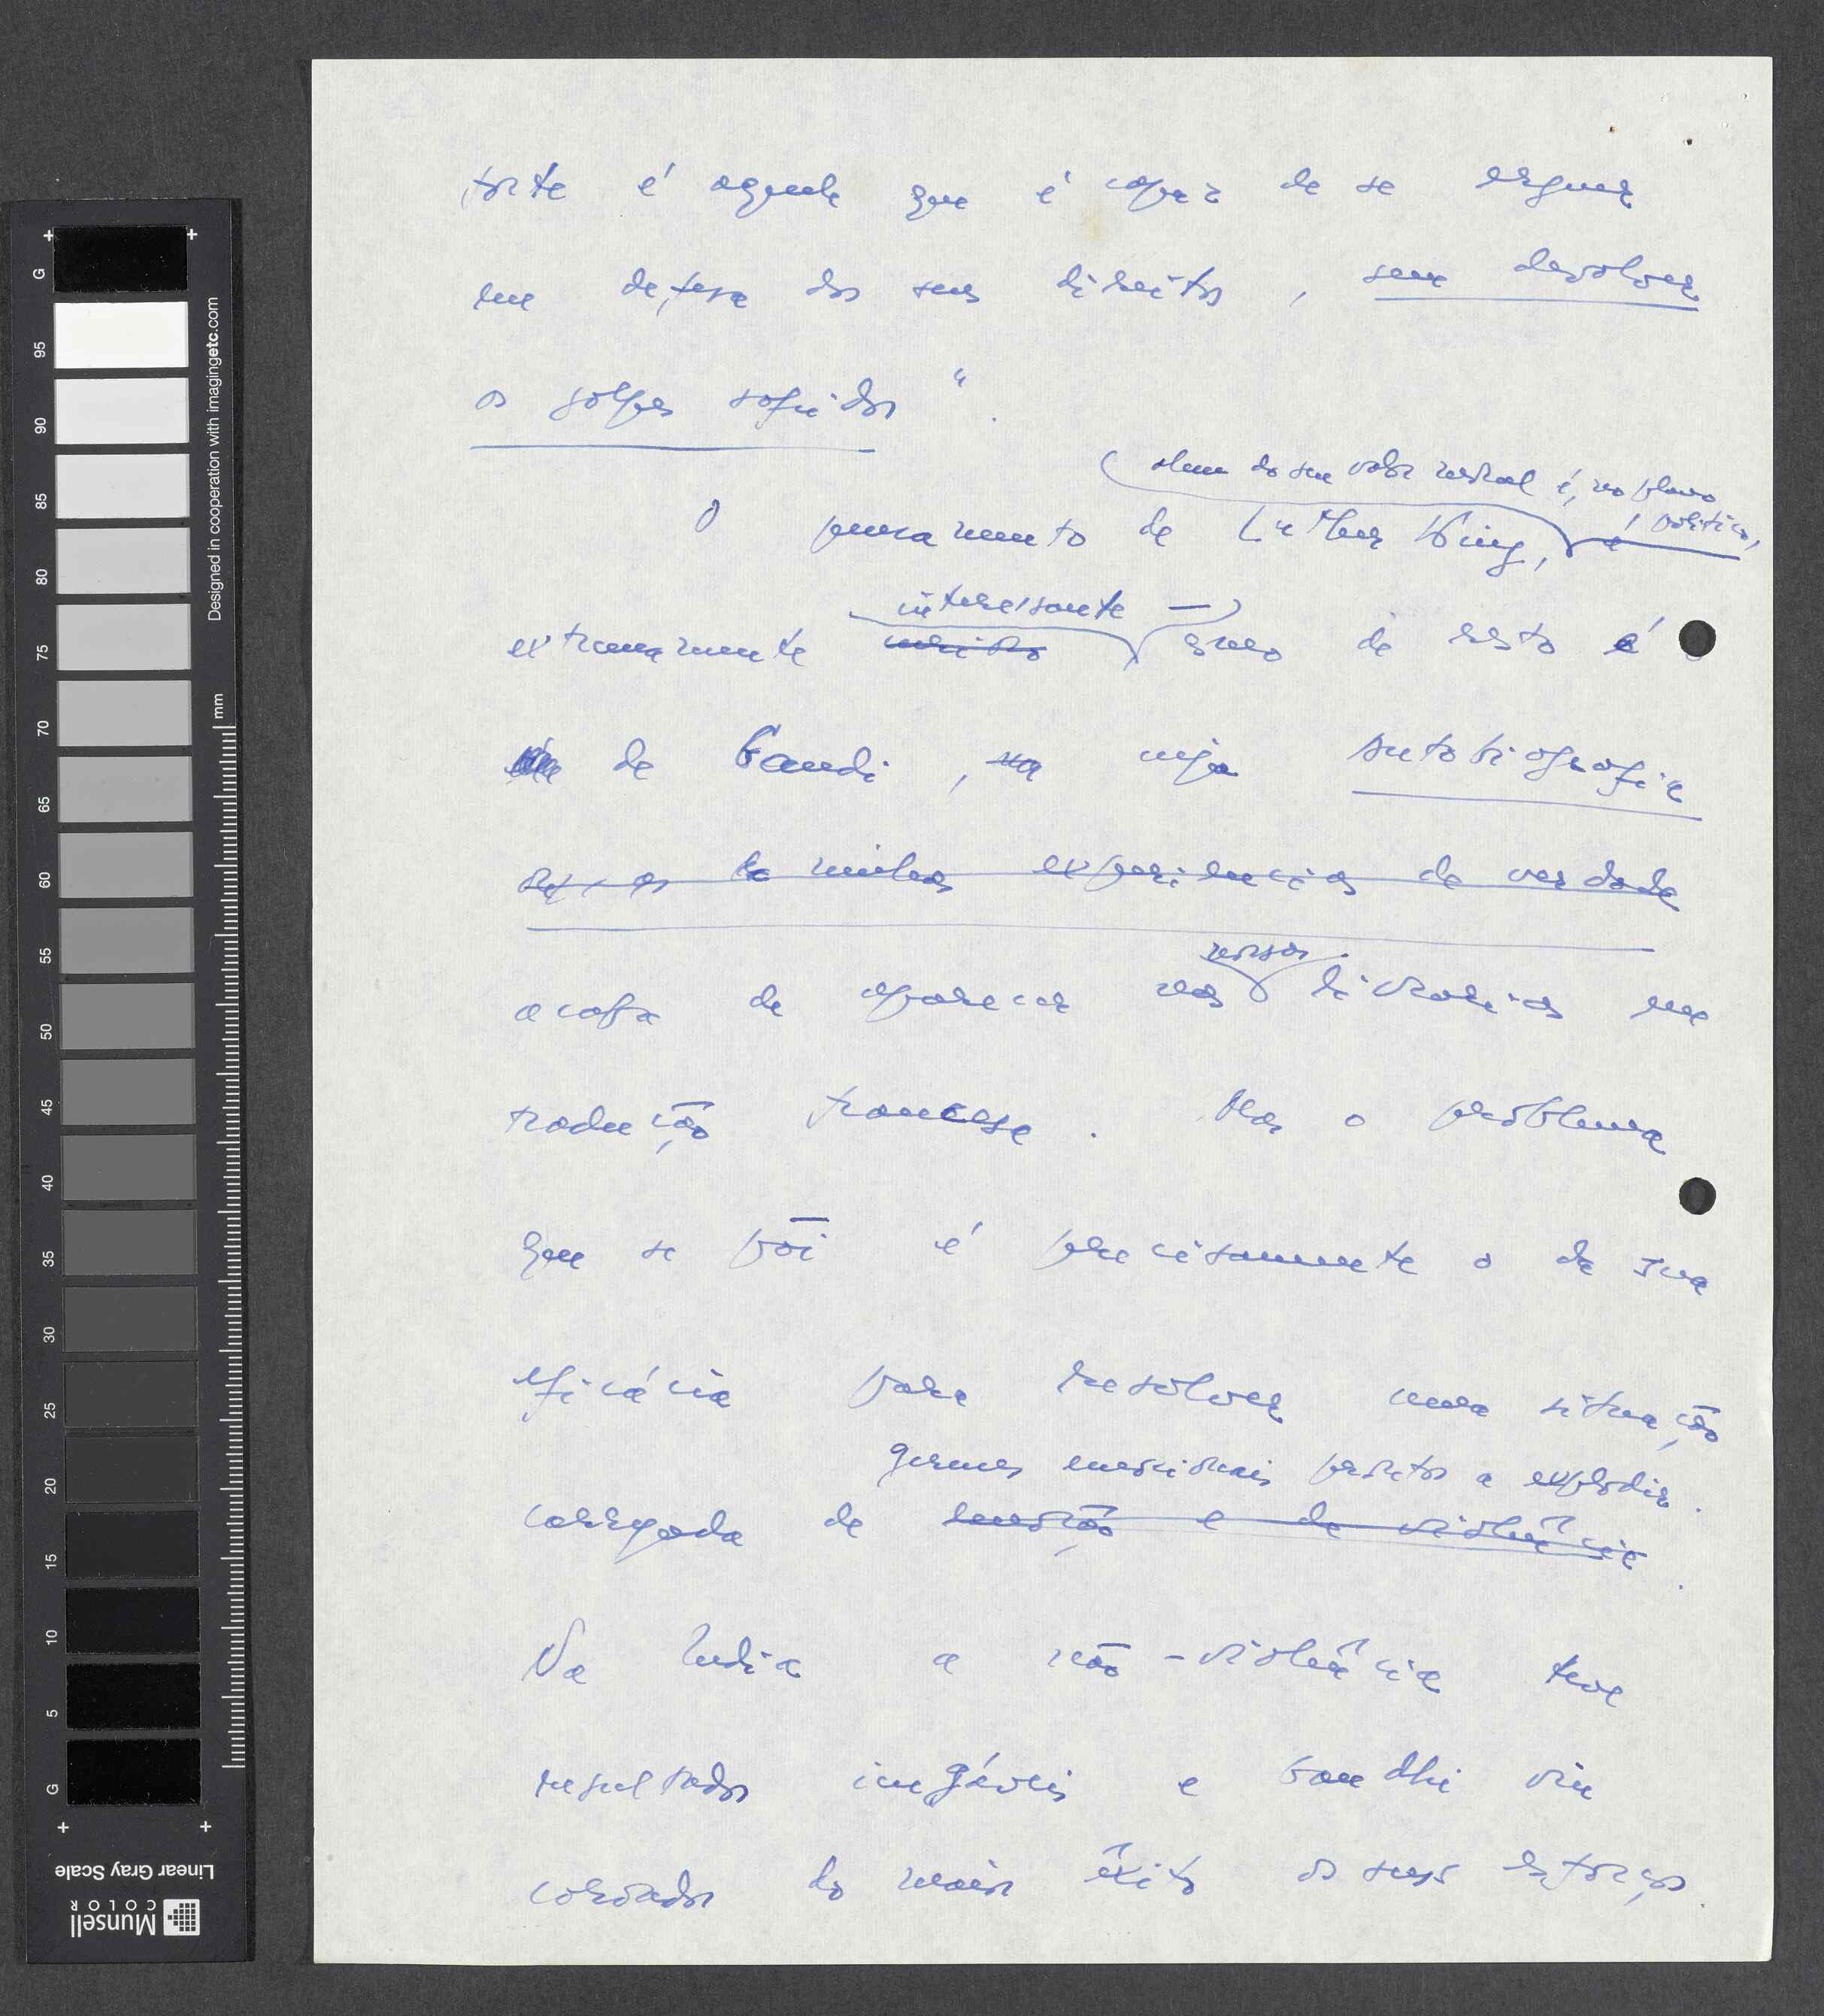 forte é aquele que é capaz de se erguer
em defesa dos seus direitos, sem devolver
os golpes sofridos".
alem do seu valor moral é, no plano
politico,
O pensamento de Luther King, é
interessante —
extremamente como de resto é
de Gandi, cuja Autobiografia
as minhas experiencias de verdade
nossas
acaba de aparecer nas livrarias em
tradução francesa. Mas o problema
que se põi é precisamente o da sua
eficácia para resolver uma situação
germes emocionais prontos a explodir.
carregada de tensão e de violência.
Na India a não-violência teve
resultados inegáveis e Gandhi viu
coroados do maior êxito os seus esforços.
G
95
90
85
80
75
70
65
60
55
50
45
40
35
30
25
20
15
10
5
G
mm
Designed in cooperation with imagingetc.com
Linear Gray Scale
Munsell
COLOR